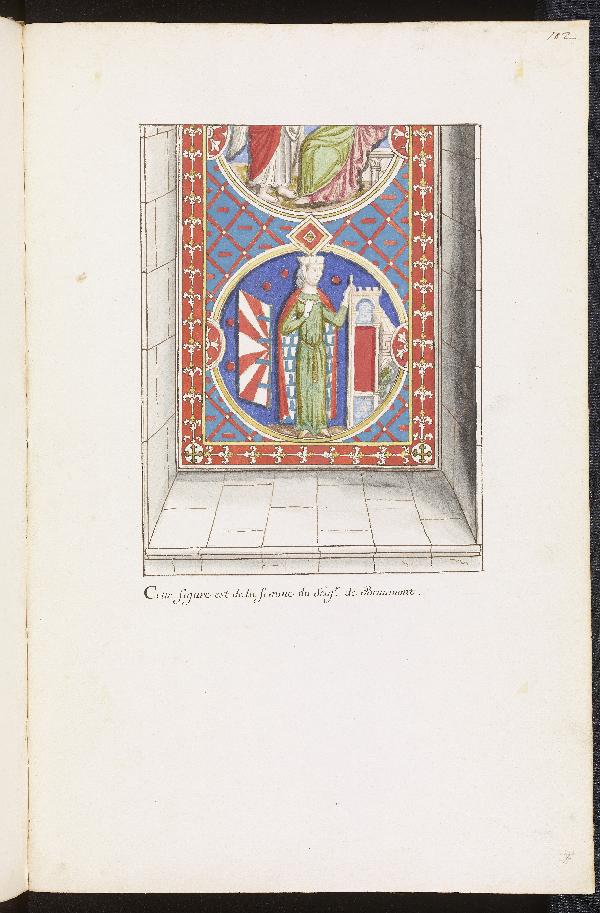 102
Cette figure est de la femme du Seigr. de Beaumont.